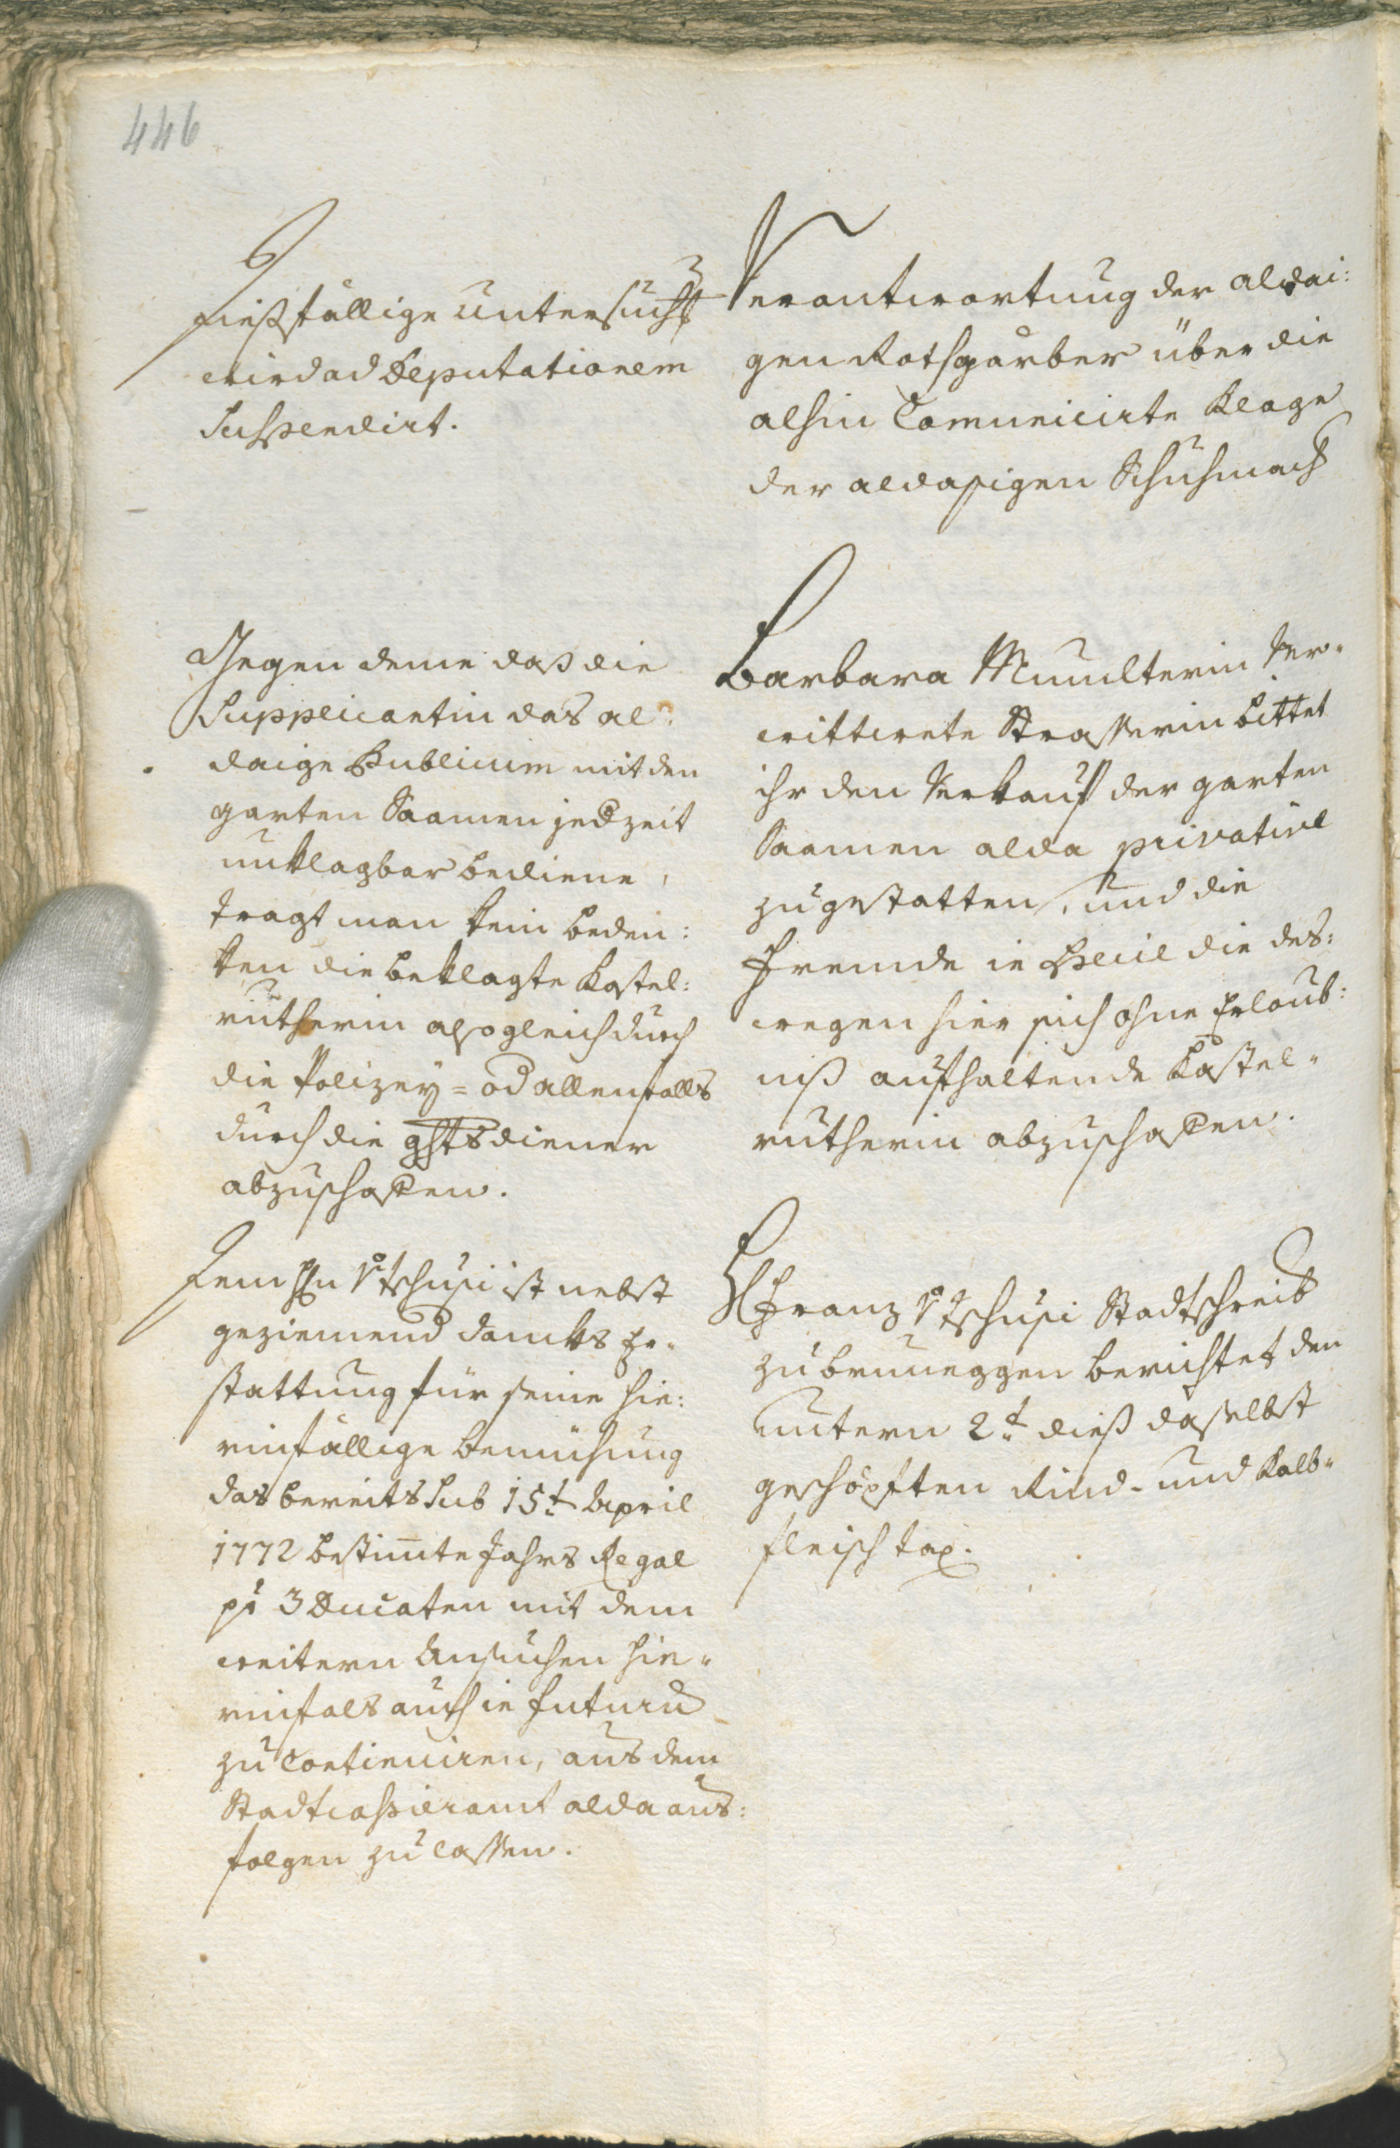 446
Dießfällige Untersuch
wird ad Deputationem
Suspendirt.
Verantwortung der aldai:
gen Rothgärber über die
alhin Comunicirte Klage
der aldasigen Schuhmach
Gegen deme daß die
Supplicantin das al:
daige Publicum mit den
garten Saamen jedzeit
unklagbar bediene,
tragt man kein beden:
ken die beklagte Kastel:
rutherin alsogleich durch
die Polizey= od allenfalls
durch die ghtsdiener
abzuschaffen.
Barbara Muulterin ver=
wittwete Strasserin bittet
ihr den Verkauf der garten
Saamen alda privative
zugestatten, und die
fremde in Specie die des:
wegen hier sich ohne Erlaub:
niß aufhaltende Kastel=
rutherin abzuschaffen.
Dem Hn v Tschusi ist nebst
geziemend Danks Er=
stattung für seine hie:
rinfällige Bemühung
das bereits Sub 15t April
1772 bestimte Jahrs Regal
pr 3 Ducaten mit dem
weitern Ansuchen hie=
rinfals auch in futurum
zu Continuiren, aus dem
Stadtcassieramt alda aus:
folgen zu lassen.
H Franz v Tschusi Stadtschreib
zu bruneggen berichtet den
untern 2t dieß daselbst
geschöpften Rind- und Kalb=
fleisch tax.